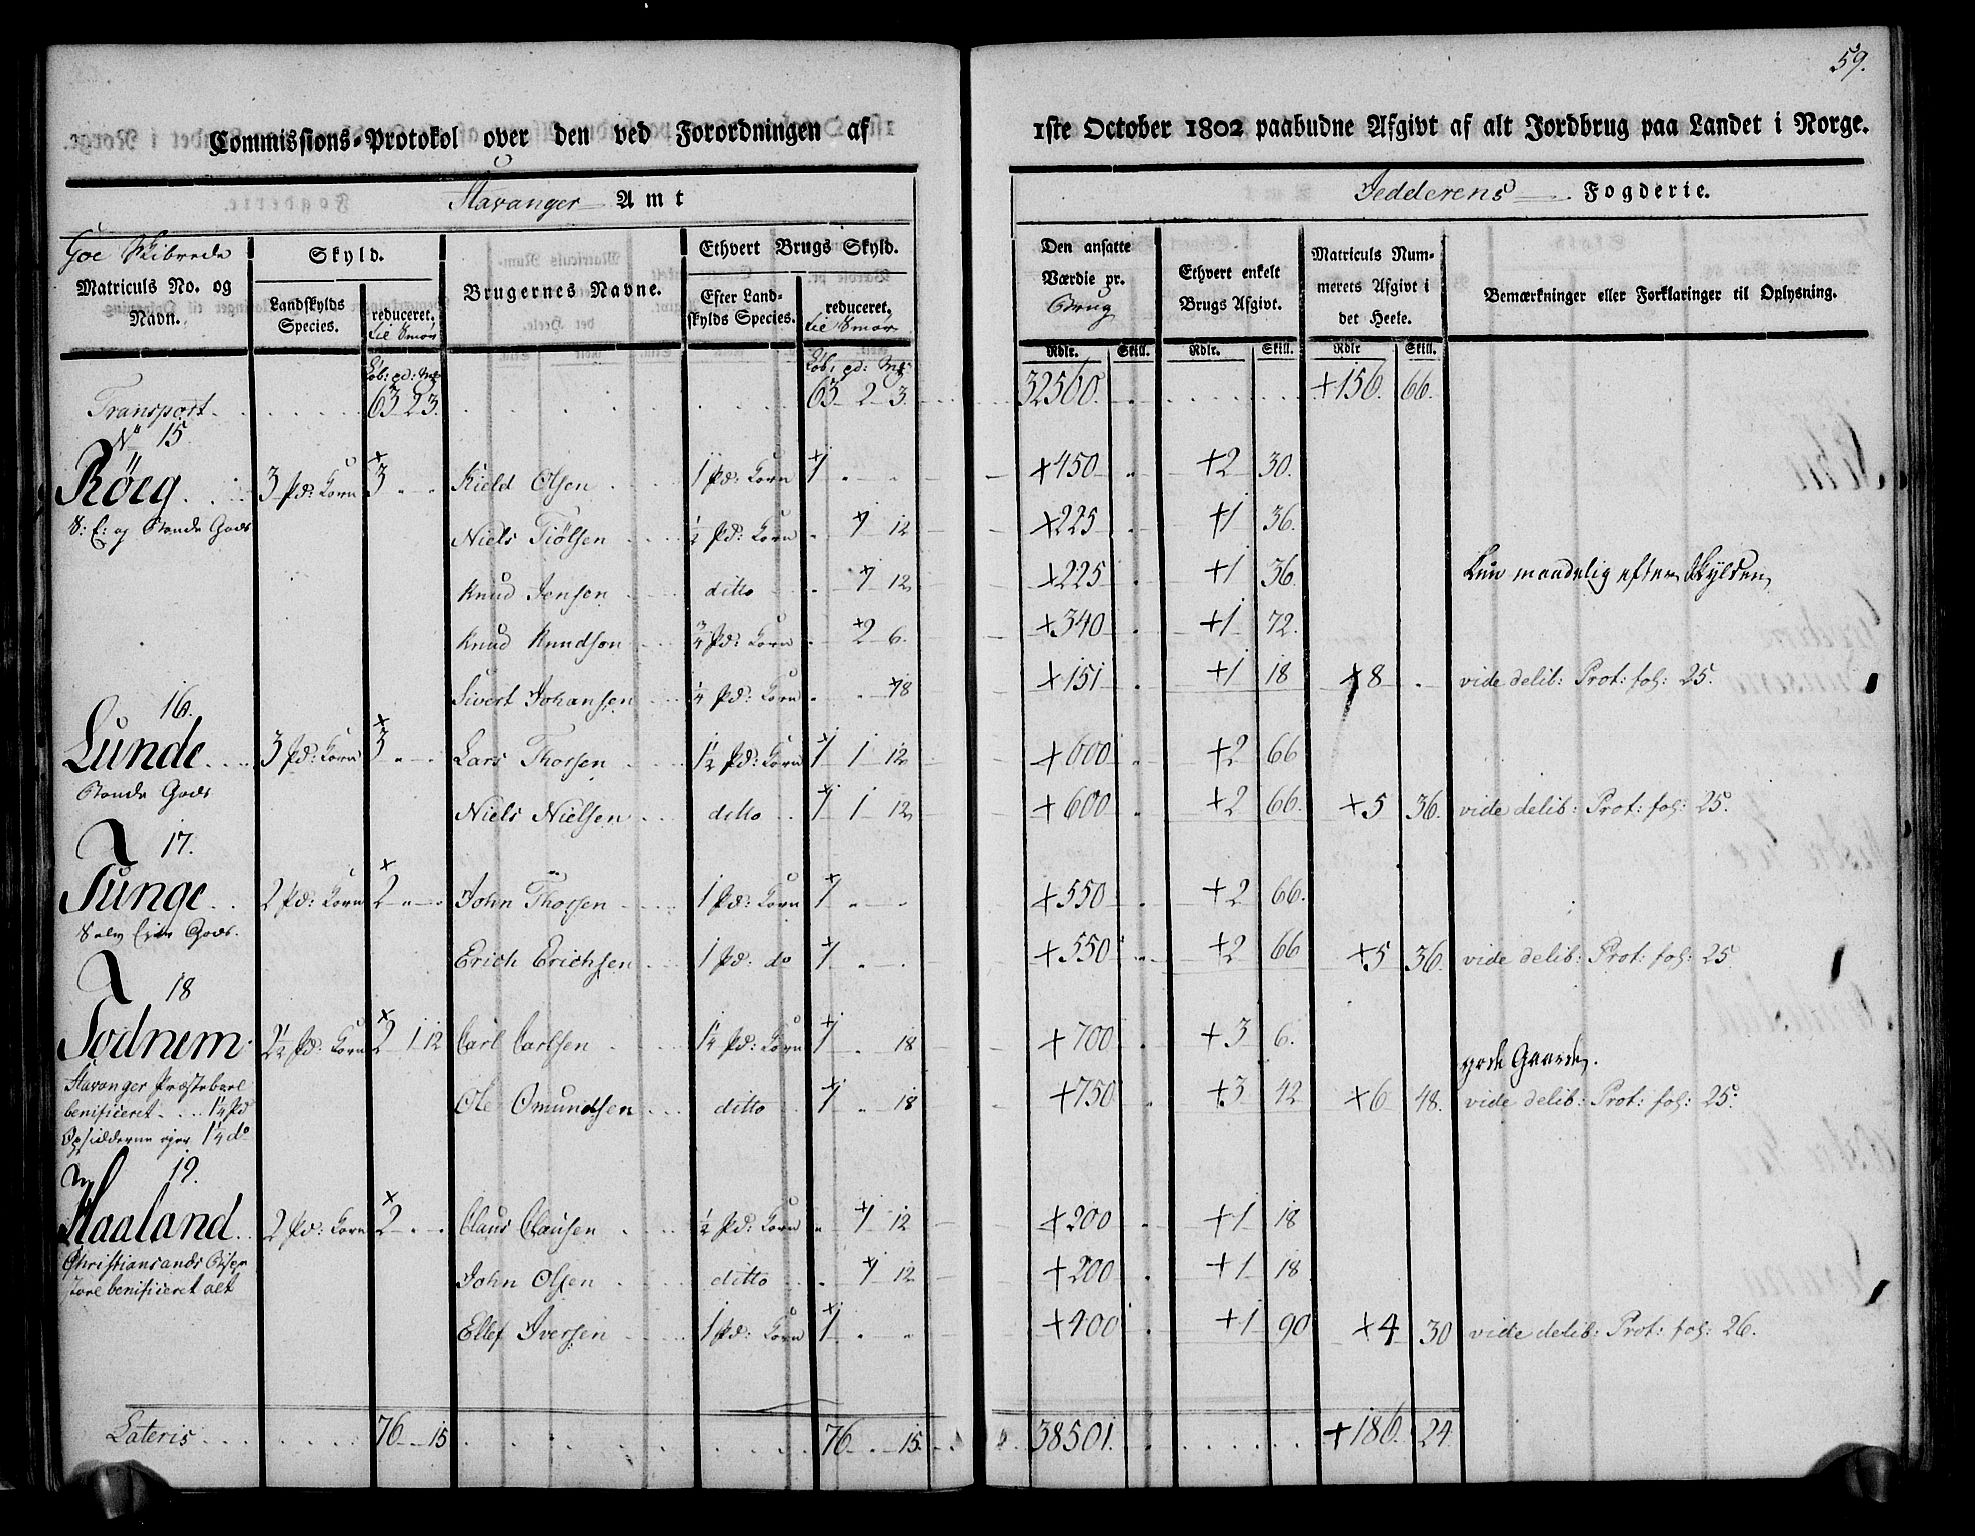 59.
Commissions-Protokol over den ved Forordningen af 1ste October 1802 paabudne Afgivt af alt Jordbrug paa Landet i Norge.
Stavanger Amt Jedderens Fogderie.
Goe Skibrede
Matriculs No. og Navn.
Skyld.
Landskylds Species.
reduceret. til Smør
Brugernes Navne.
Ethvert Brugs Skyld.
Efter Landskylds Species.
reduceret. til Smør
Den ansatte Værdie pr. Brug
Ethvert enkelt Brugs Afgivt.
Matriculs Nummerets Afgivt i det Heele.
Bemærkninger eller Forklaringer til Oplysning.
Løb: pd: Mk Løb: pd: Mk Rdlr. Skill. Rdlr. Skill. Rdlr Skill.
Transport 63 2 3 63 2 3 32560 +156 66.
No 15
Röeg 3 Pd: Korn 3 Kield Olsen 1 Pd: Korn 1 +450 +2 30.
S: E: og Bonde Gods Niels Tiölsen ½ Pd: Korn 1 12 +225 +1 36.
Knud Jensen ditto 1 12 +225 +1 36. Kun maadelig efter Skylden
Knud Knudson ¾ Pd: Korn 2 6. +340 +1 72.
Sivert Johansen ¼ Pd: Korn 18 +151 +1 18 +8 vide delib: Prot: fol: 25.
16.
Lunde 3 Pd: Korn 3 Lars Thorsen 1½ Pd: Korn 1 1 12 +600 +2 66
Bonde Gods Niels Nielsen ditto 1 1 12 +600 +2 66. +5 36. vide delib: Prot: fol: 25.
17.
Tunge 2 Pd: Korn 2 John Thorsen 1 Pd: Korn 1 +550 +2 66.
Selv Eier Gods. Erich Erichsen 1 Pd: do 1 +550 +2 66 +5 36. vide delib: Prot: fol: 25
18
Todnem 2½ Pd: Korn 2 1 12 Carl Carlsen 1¼ Pd: Korn 1 18 +700 +3 6.
gode Gaarde.
Stavanger Præstebord
benificeret 1¼ Pd Ole Omundsen ditto 1 18 +750 +3 42 +6 48. vide delib: Prot: fol: 25.
Opsidderne ejer 1¼ do
19.
Haaland 2 Pd: Korn 2 Claus Clausen ½ Pd: Korn 1 12 +200 +1 18
Christiansands Bispe
stoel benificeret alt John Olsen ditto 1 12 +200 +1 18.
Ellef Iversen 1 Pd: Korn 1 +400 +1 90 +4 30 vide delib: Prot: fol: 26.
Lateris 76 15 76 15. 38501. +186. 24